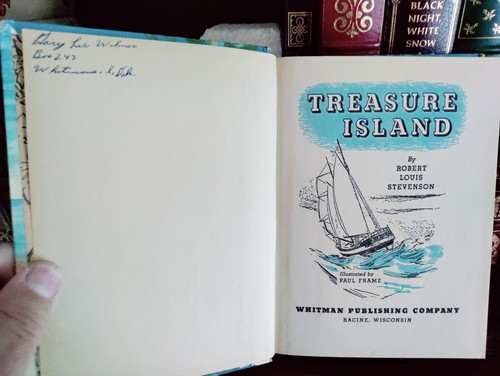 Gary Lee
Box 243
TREASURE
ISLAND
By
ROBERT
LOUIS
STEVENSON
Illustrated by
PAUL FRAME
WHITMAN PUBLISHING COMPANY
RACINE, WISCONSIN
BLACK
NIGHT,
WHITE
SNOW